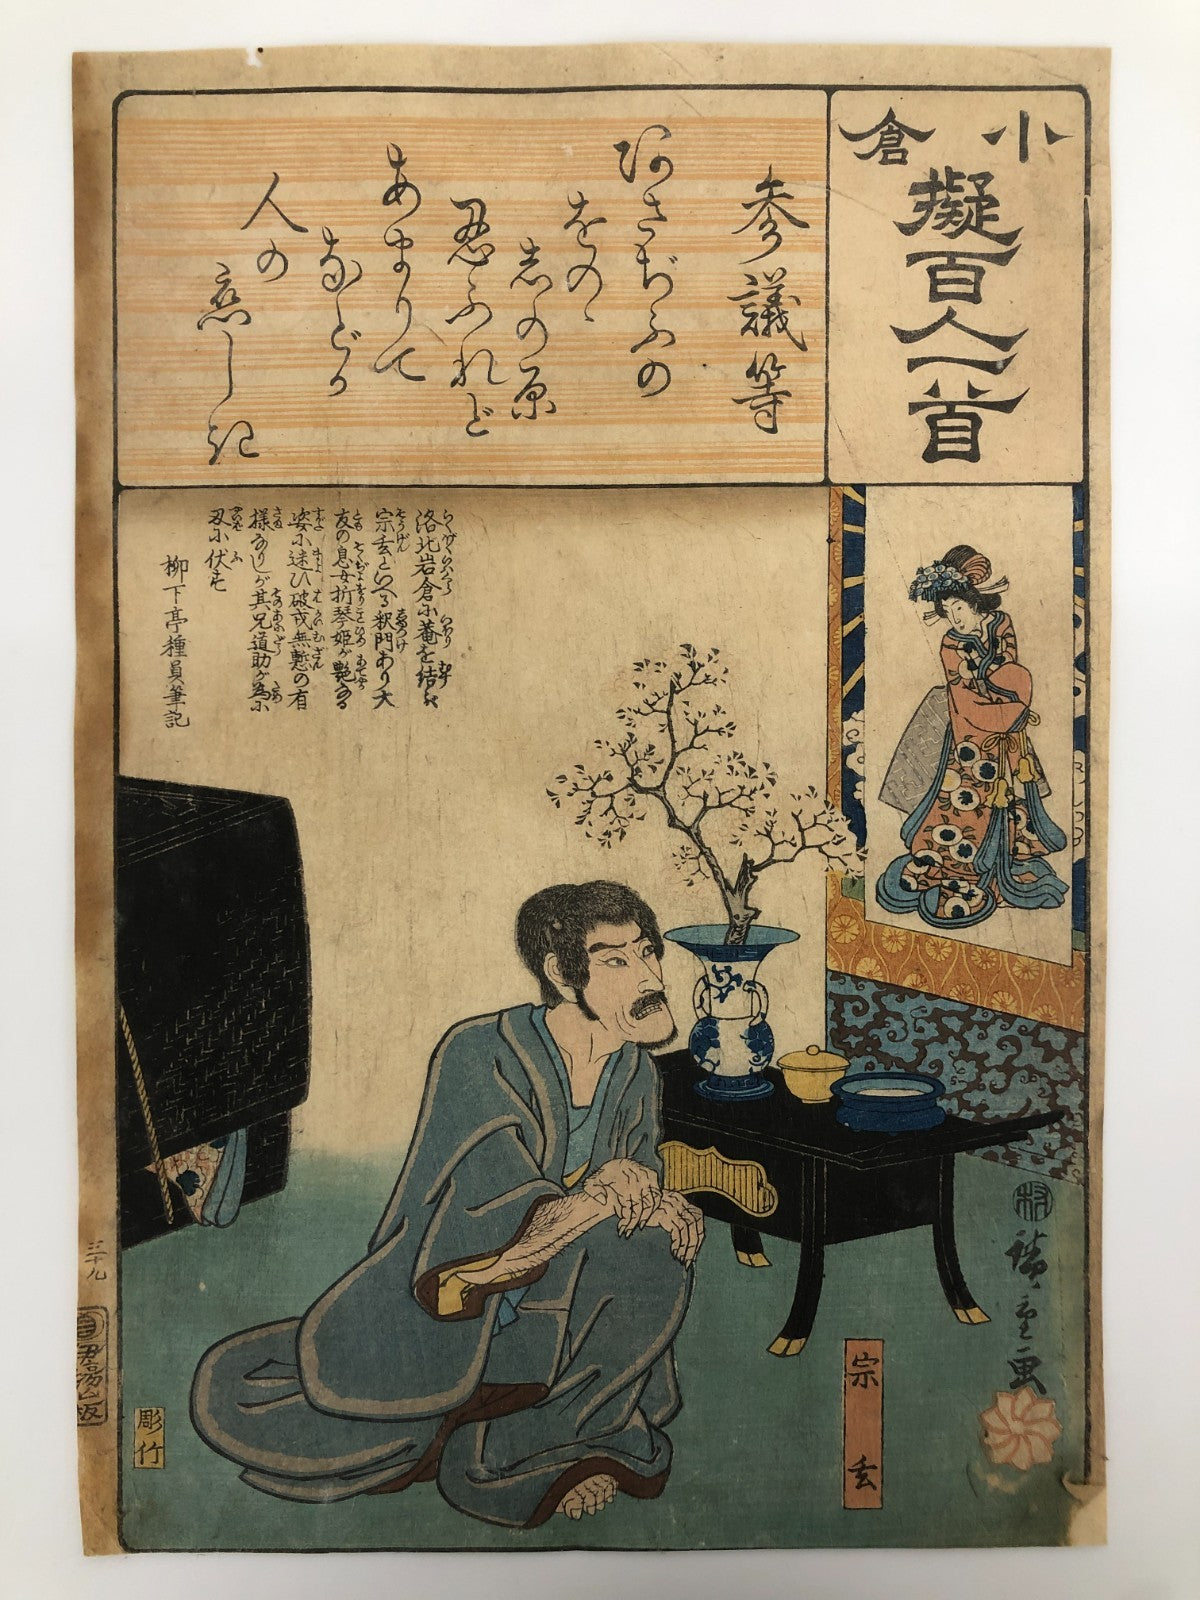 小倉
擬百人一首
参議等
あさぢふの
をのゝ
志の原
忍ふれど
あまりて
などか
人の
恋しき
洛北岩倉に菴を結し
宗玄といへる釈門あり大
友の息女折琴姫が艶なる
姿に迷ひ破戒無慙の有
様なりしが其兄道助が為に
刃に伏す
柳下亭種員筆記
宗玄
廣重画
三十九
伊場仙板
彫竹